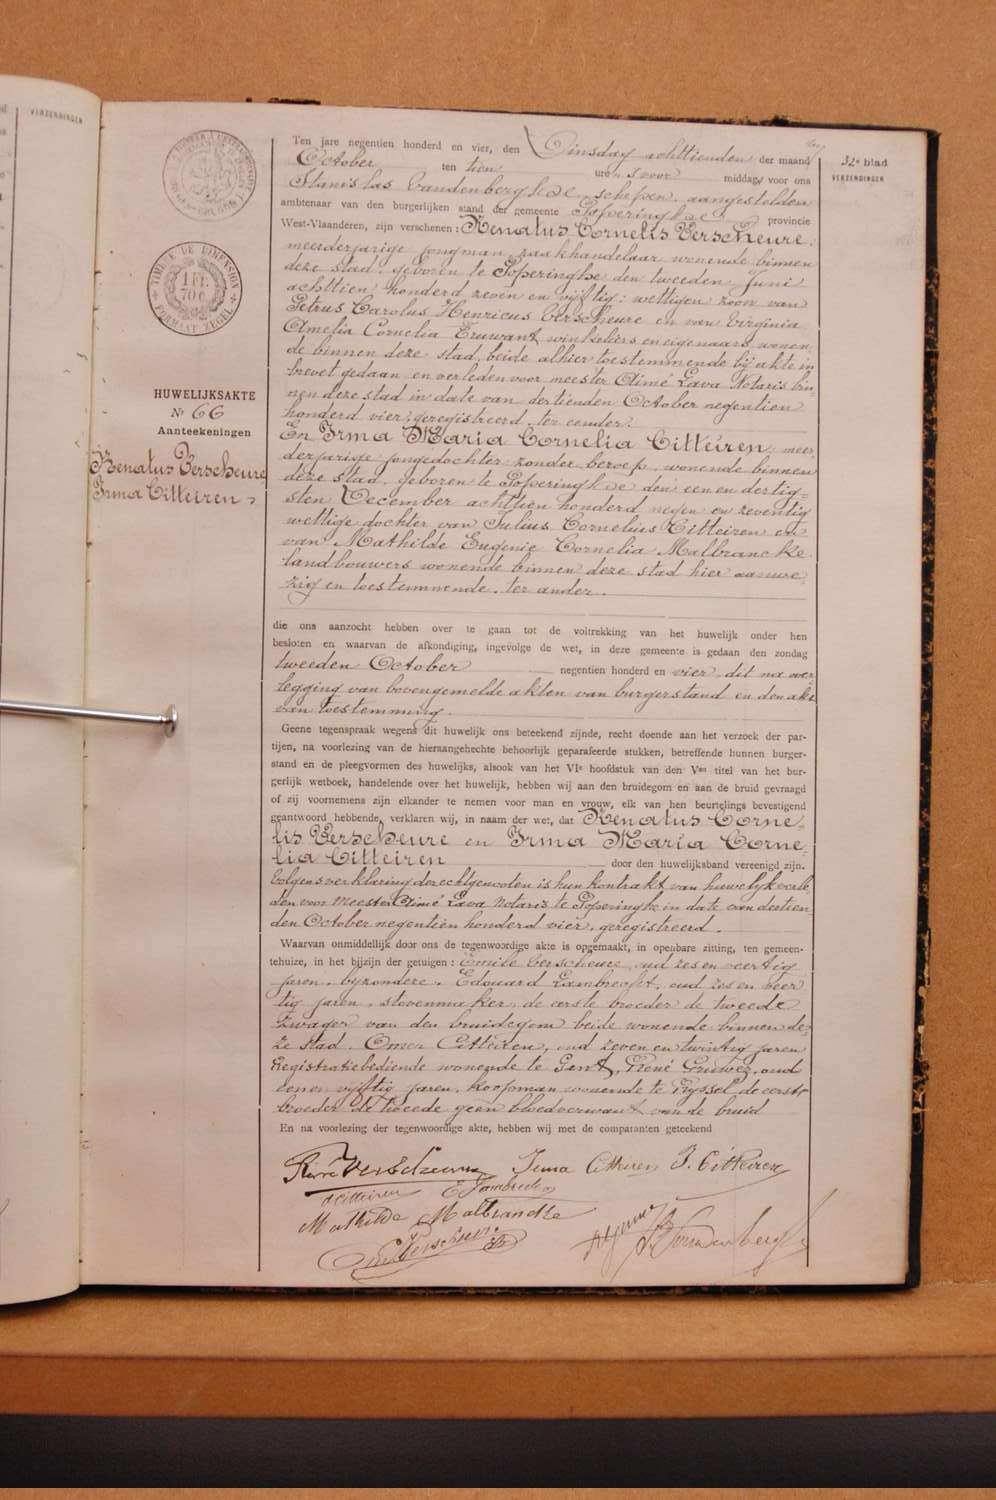 VERZENDINGEN
TIMBRE DE DIMENSION
1 FR.
70 C
FORMAAT ZEGEL
HUWELIJKSAKTE
Nr 66
Aanteekeningen
Renatus Verscheure
Irma Citteiren
32e blad
VERZENDINGEN
Ten jare negentien honderd en vier, den Dinsdag achttienden der maand
October ten tien ure s voor middag, voor ons
Stanislas Vandenberghe schepen, aangestelden
ambtenaar van den burgerlijken stand der gemeente Poperinghe provincie
West-Vlaanderen, zijn verschenen: Renatus Cornelis Verscheure,
meerderjarige jongman, zaakhandelaar wonende binnen
deze stad, geboren te Poperinghe den tweeden Juni
achttien honderd zeven en vijftig: wettigen zoon van
Petrus Carolus Henricus Verscheure en van Virginia
Amelia Cornelia Truwant, winkeliers en eigenaars wonen
de binnen deze stad, beide alhier toestemmende bij akte in
brevet gedaan en verleden voor meester Aimé Lava Notaris bin-
nen deze stad in date van dertienden October negentien
honderd vier, geregistreerd. ter eender.
En Irma Maria Cornelia Citteiren, meer
derjarige jongedochter zonder beroep, wonende binnen
deze stad, geboren te Poperinghe den een en dertig-
sten December achttien honderd negen en zeventig
wettige dochter van Julius Cornelius Citteiren en
van Mathilde Eugenie Cornelia Malbrancke
landbouwers wonende binnen deze stad hier aanwe-
zig en toestemmende. ter ander.
die ons aanzocht hebben over te gaan tot de voltrekking van het huwelijk onder hen
besloten en waarvan de afkondiging, ingevolge de wet, in deze gemeente is gedaan den zondag
tweeden October negentien honderd en vier, dit na over
legging van bovengemelde akten van burgerstand en den akt
van toestemming.
Geene tegenspraak wegens dit huwelijk ons beteekend zijnde, recht doende aan het verzoek der par-
tijen, na voorlezing van de hieraangehechte behoorlijk geparafeerde stukken, betreffende hunnen burger-
stand en de pleegvormen des huwelijks, alsook van het VIe hoofdstuk van den Ven titel van het bur-
gerlijk wetboek, handelende over het huwelijk, hebben wij aan den bruidegom en aan de bruid gevraagd
of zij voornemens zijn elkander te nemen voor man en vrouw, elk van hen beurtelings bevestigend
geantwoord hebbende, verklaren wij, in naam der wet, dat Renatus Corne-
lis Verscheure en Irma Maria Corne-
lia Citteiren door den huwelijksband vereenigd zijn.
Volgens verklaring der echtgenoten is hun kontrakt van huwelijk verle-
den voor Meester Aimé Lava Notaris te Poperinghe in date van dertien-
den October negentien honderd vier, geregistreerd.
Waarvan onmiddellijk door ons de tegenwoordige akte is opgemaakt, in openbare zitting, ten gemeen-
tehuize, in het bijzijn der getuigen: Emile Verscheure, oud zes en veertig
jaren, bijzondere, Edouard Lambrecht, oud zes en veer
tig jaren, stovenmaker, de eerste broeder de tweede
zwager van den bruidegom beide wonende binnen de-
ze stad, Omer Citteiren, oud zeven en twintig jaren
Registratiebediende wonende te Gent, René Gruwez, oud
een en vijftig jaren, koopman wonende te Ryssel de eerste
broeder de tweede geen bloedverwant van de bruid
En na voorlezing der tegenwoordige akte, hebben wij met de comparanten geteekend
René Verscheure Irma Citteiren J. Citteiren
O Citteiren E Lambrecht
Mathilde Malbrancke
Em. Verscheure
Vandenberghe